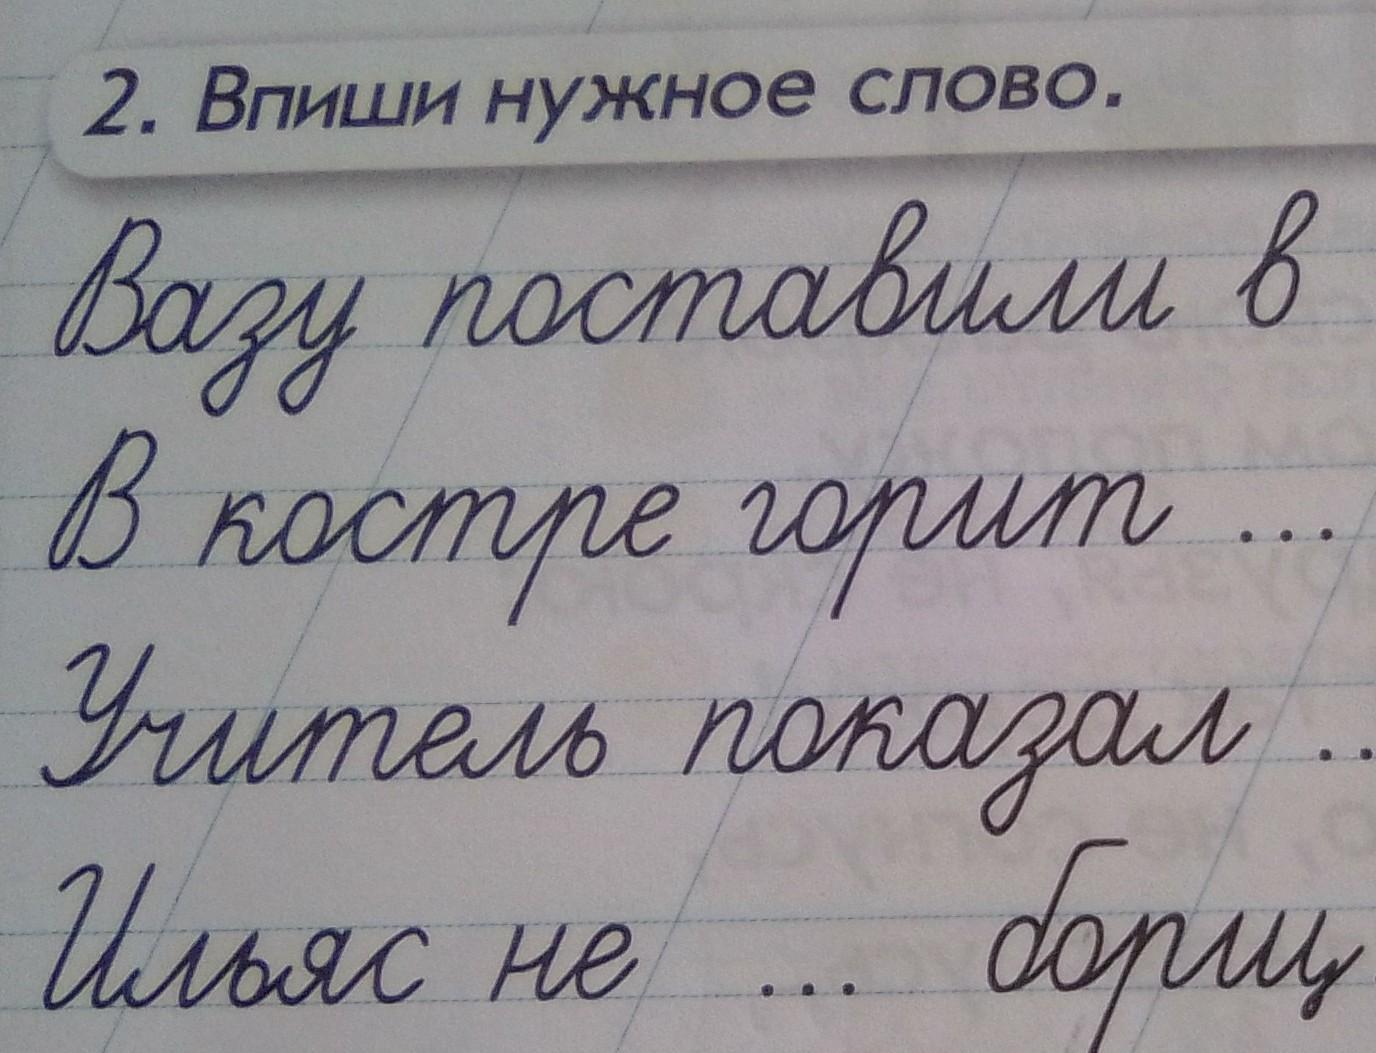 2. Впиши нужное слово.
Вазу поставили в
В костре горит ...
Учитель показал ..
Ильяс не ... борщ